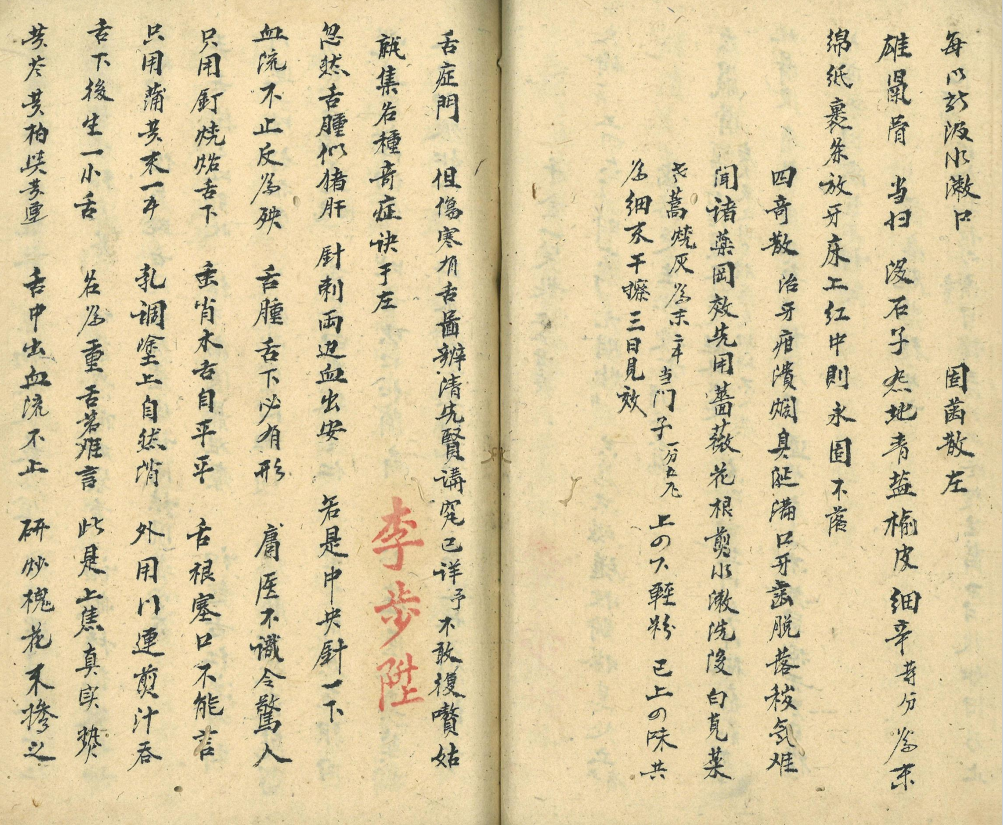 每以新汲水漱口　固齒散左
雄鼠骨　当归　没石子　熟地　青盐　榆皮　細辛　等分　為末
绵纸裹条放牙床上缸中則永固不落
四奇散　治牙疳潰爛臭涎滿口牙齒脫落穢气难
聞諸藥罔效先用薔薇花根煎水漱洗後白莧菜
老蒿燒灰為末二本　当门子一分五厘　上の下輕粉　已上の味共
為細末干擦三日見效
舌症門　但傷寒有舌啚辨清先賢講究已詳予不敢復贅姑
就集各種奇症訣于左
李步陞
忽然舌腫似猪肝　針刺両边血出安　若是中央針一下
血流不止反為殃　舌腫舌下必有形　庸医不識令驚人
只用釘燒烙舌下　重肖木舌自平平　舌根塞口不能言
只用蒲黄末一味　乳調塗上自然消　外用川連煎汁吞
舌下後生一小舌　名為重舌若难言　此是上焦真实势
黄芩黄柏與黄連　舌中出血流不止　研炒槐花末摻之